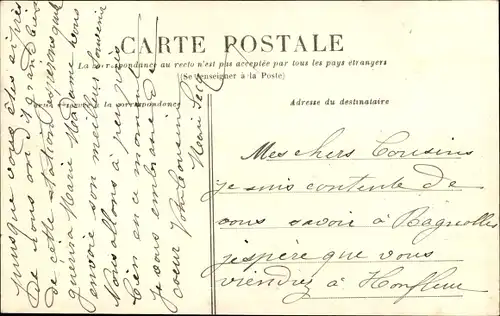 CARTE POSTALE
La correspondance au recto n'est pas acceptée par tous les pays étrangers
(Se renseigner à la Poste)
la correspondance
Adresse du destinataire
Mes chers Cousins
je suis contente de
vous savoir à Bagnolles
j'espère que vous
viendrez à Honfleur
puisque vous êtes si près
De nous on dit grand bien
de cette station espérons que
guerira Marie Madame vous
envoie son meilleur souvenir
Nous allons à peu près
bien en ce moment
je vous embrasse de
coeur Votre Cousine
Marie